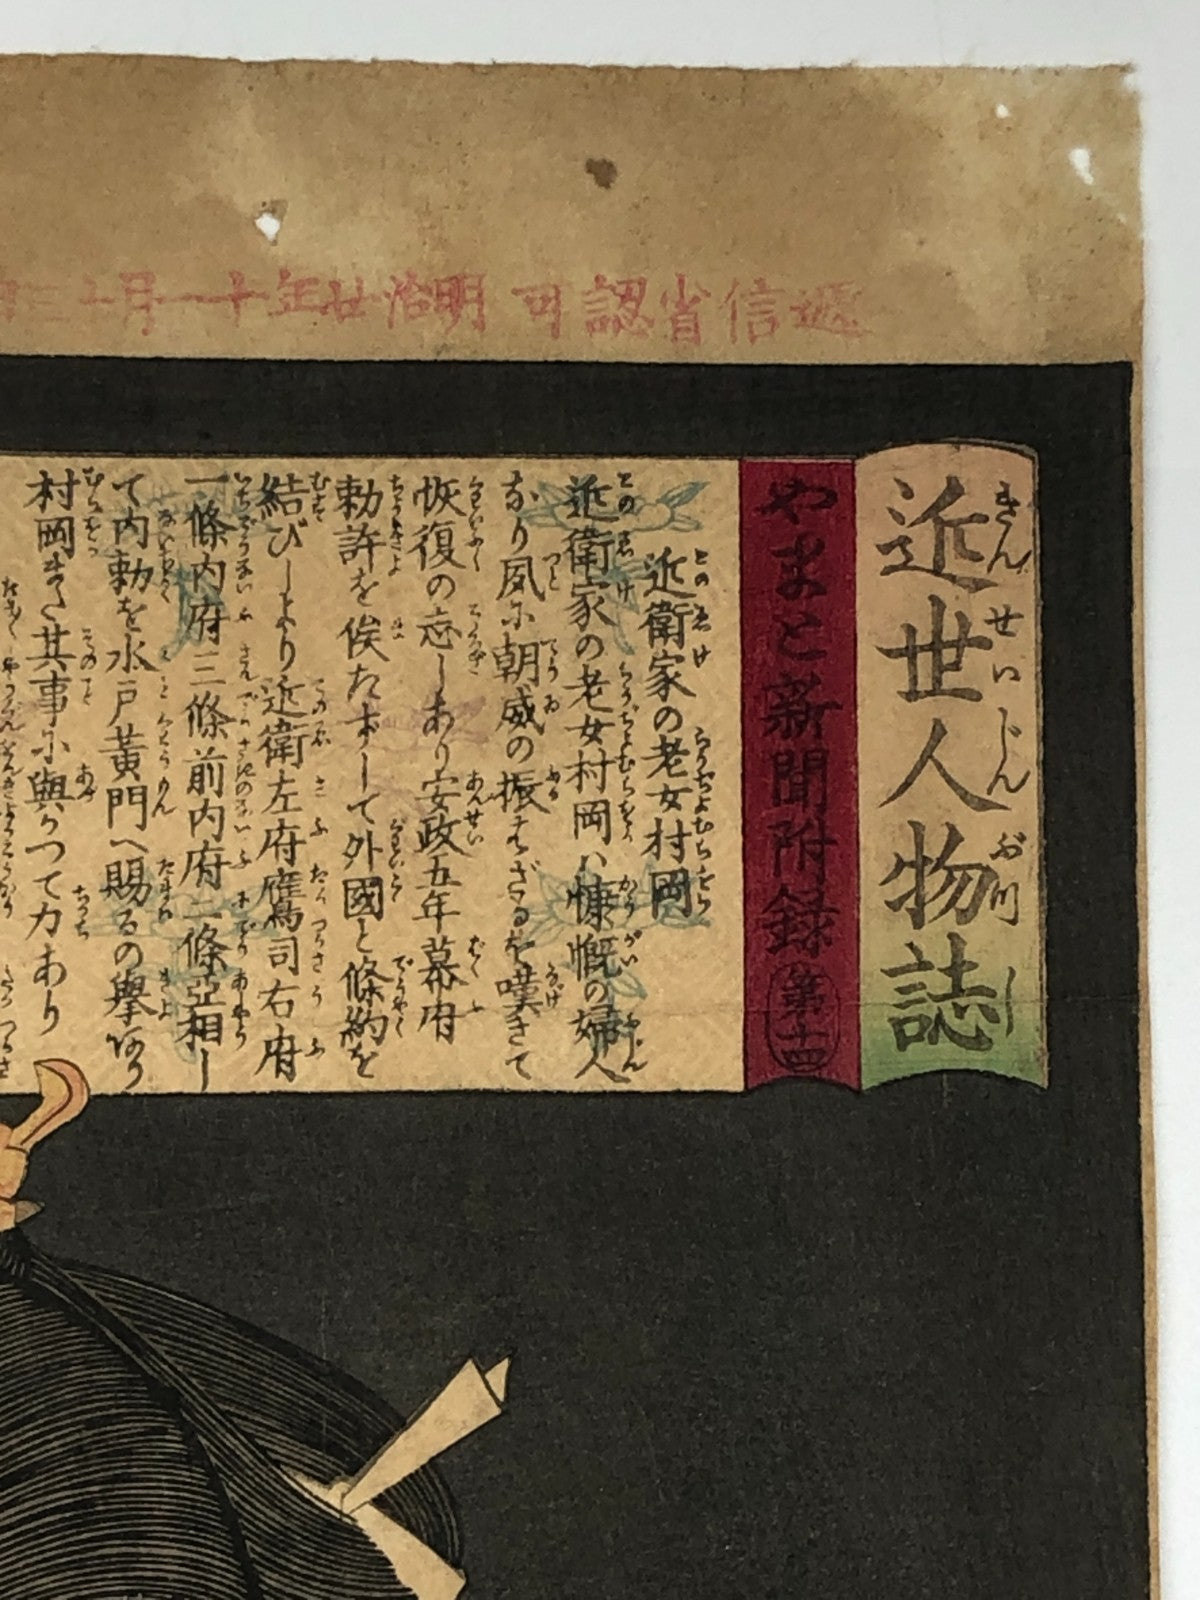 遞信省認可 明治廿年十一月十三日
近世人物誌
きんせいじんぶつし
やまと新聞附録 第十四
近衛家の老女村岡
近衛家の老女村岡ハ慷慨の婦人
なり夙に朝威の振はざるを嘆きて
恢復の志しあり安政五年幕府
勅許を俟たずして外國と條約を
結びしより近衛左府鷹司右府
一條内府三條前内府二條亞相し
て内勅を水戸黄門へ賜るの擧あり
村岡また其事に與つて力あり